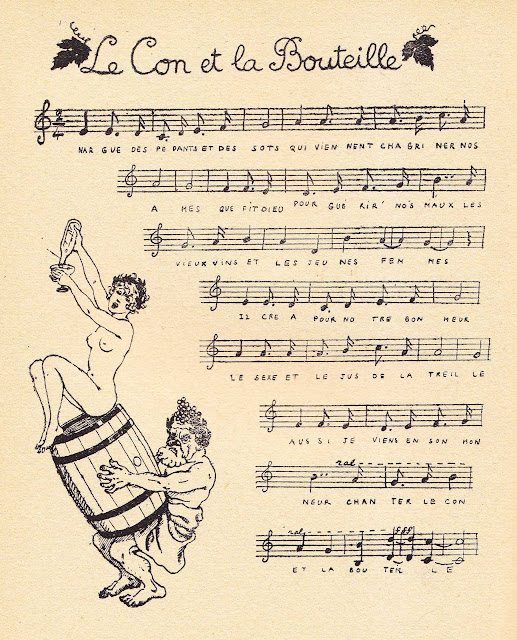 Le Con et la Bouteille
NAR GUE DES PE DANTS ET DES SOTS QUI VIEN NENT CHA GRI NER NOS
A MES QUE FIT DIEU POUR GUÉ RIR' NOS MAUX LES
VIEUX VINS ET LES JEU NES FEM MES
IL CRE A POUR NO TRE BON HEUR
LE SEXE ET LE JUS DE LA TREIL LE
AUS SI JE VIENS EN SON HON
ral
NEUR CHAN TER LE CON
ral fff
ET LA BOU TEIL LE